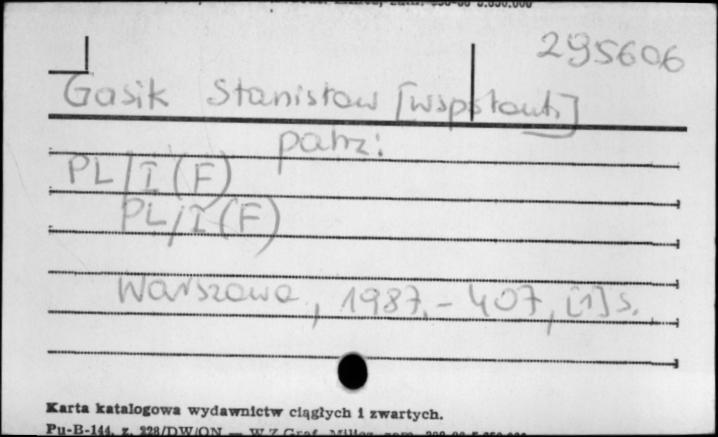 295606
Gasik Stanisław [współaut.]
patrz:
PL/I (F)
PL/I (F)
Warszawa, 1987. - 407, [1] s.
Karta katalogowa wydawnictw ciągłych i zwartych.
Pu-B-144, z. 228/DW/ON — W.Z.Graf.